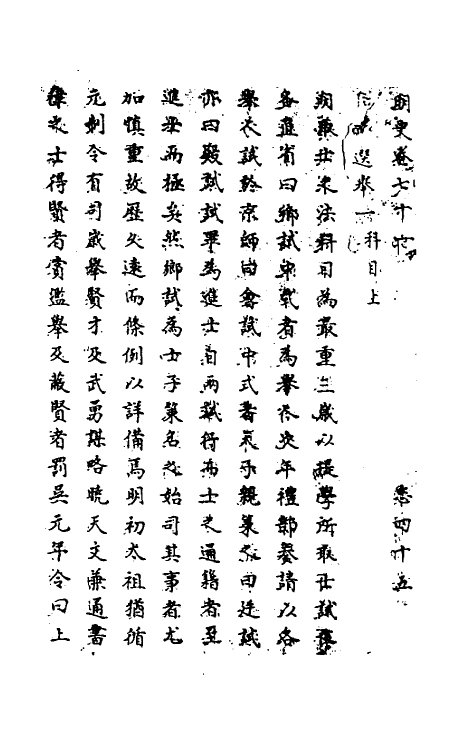 明史卷七十六 卷四十五
志 選舉一 科目上
明最廿求法科目為最重三歲以提學所取士試
各直省曰鄉試中式者為舉人次年禮部奏請以各
舉人試於京師曰會試中式者天子親策之曰廷試
亦曰殿試試畢為進士自兩試行而士之通籍者至
進畢而極矣然鄉試為士子策名之始司其事者尤
加慎重故歷久遠而條例以詳備焉明初太祖猶循
元制令有司歲舉賢才及武勇謀略曉天文兼通書
律之士得賢者賞濫舉及蔽賢者罰吳元年令曰上